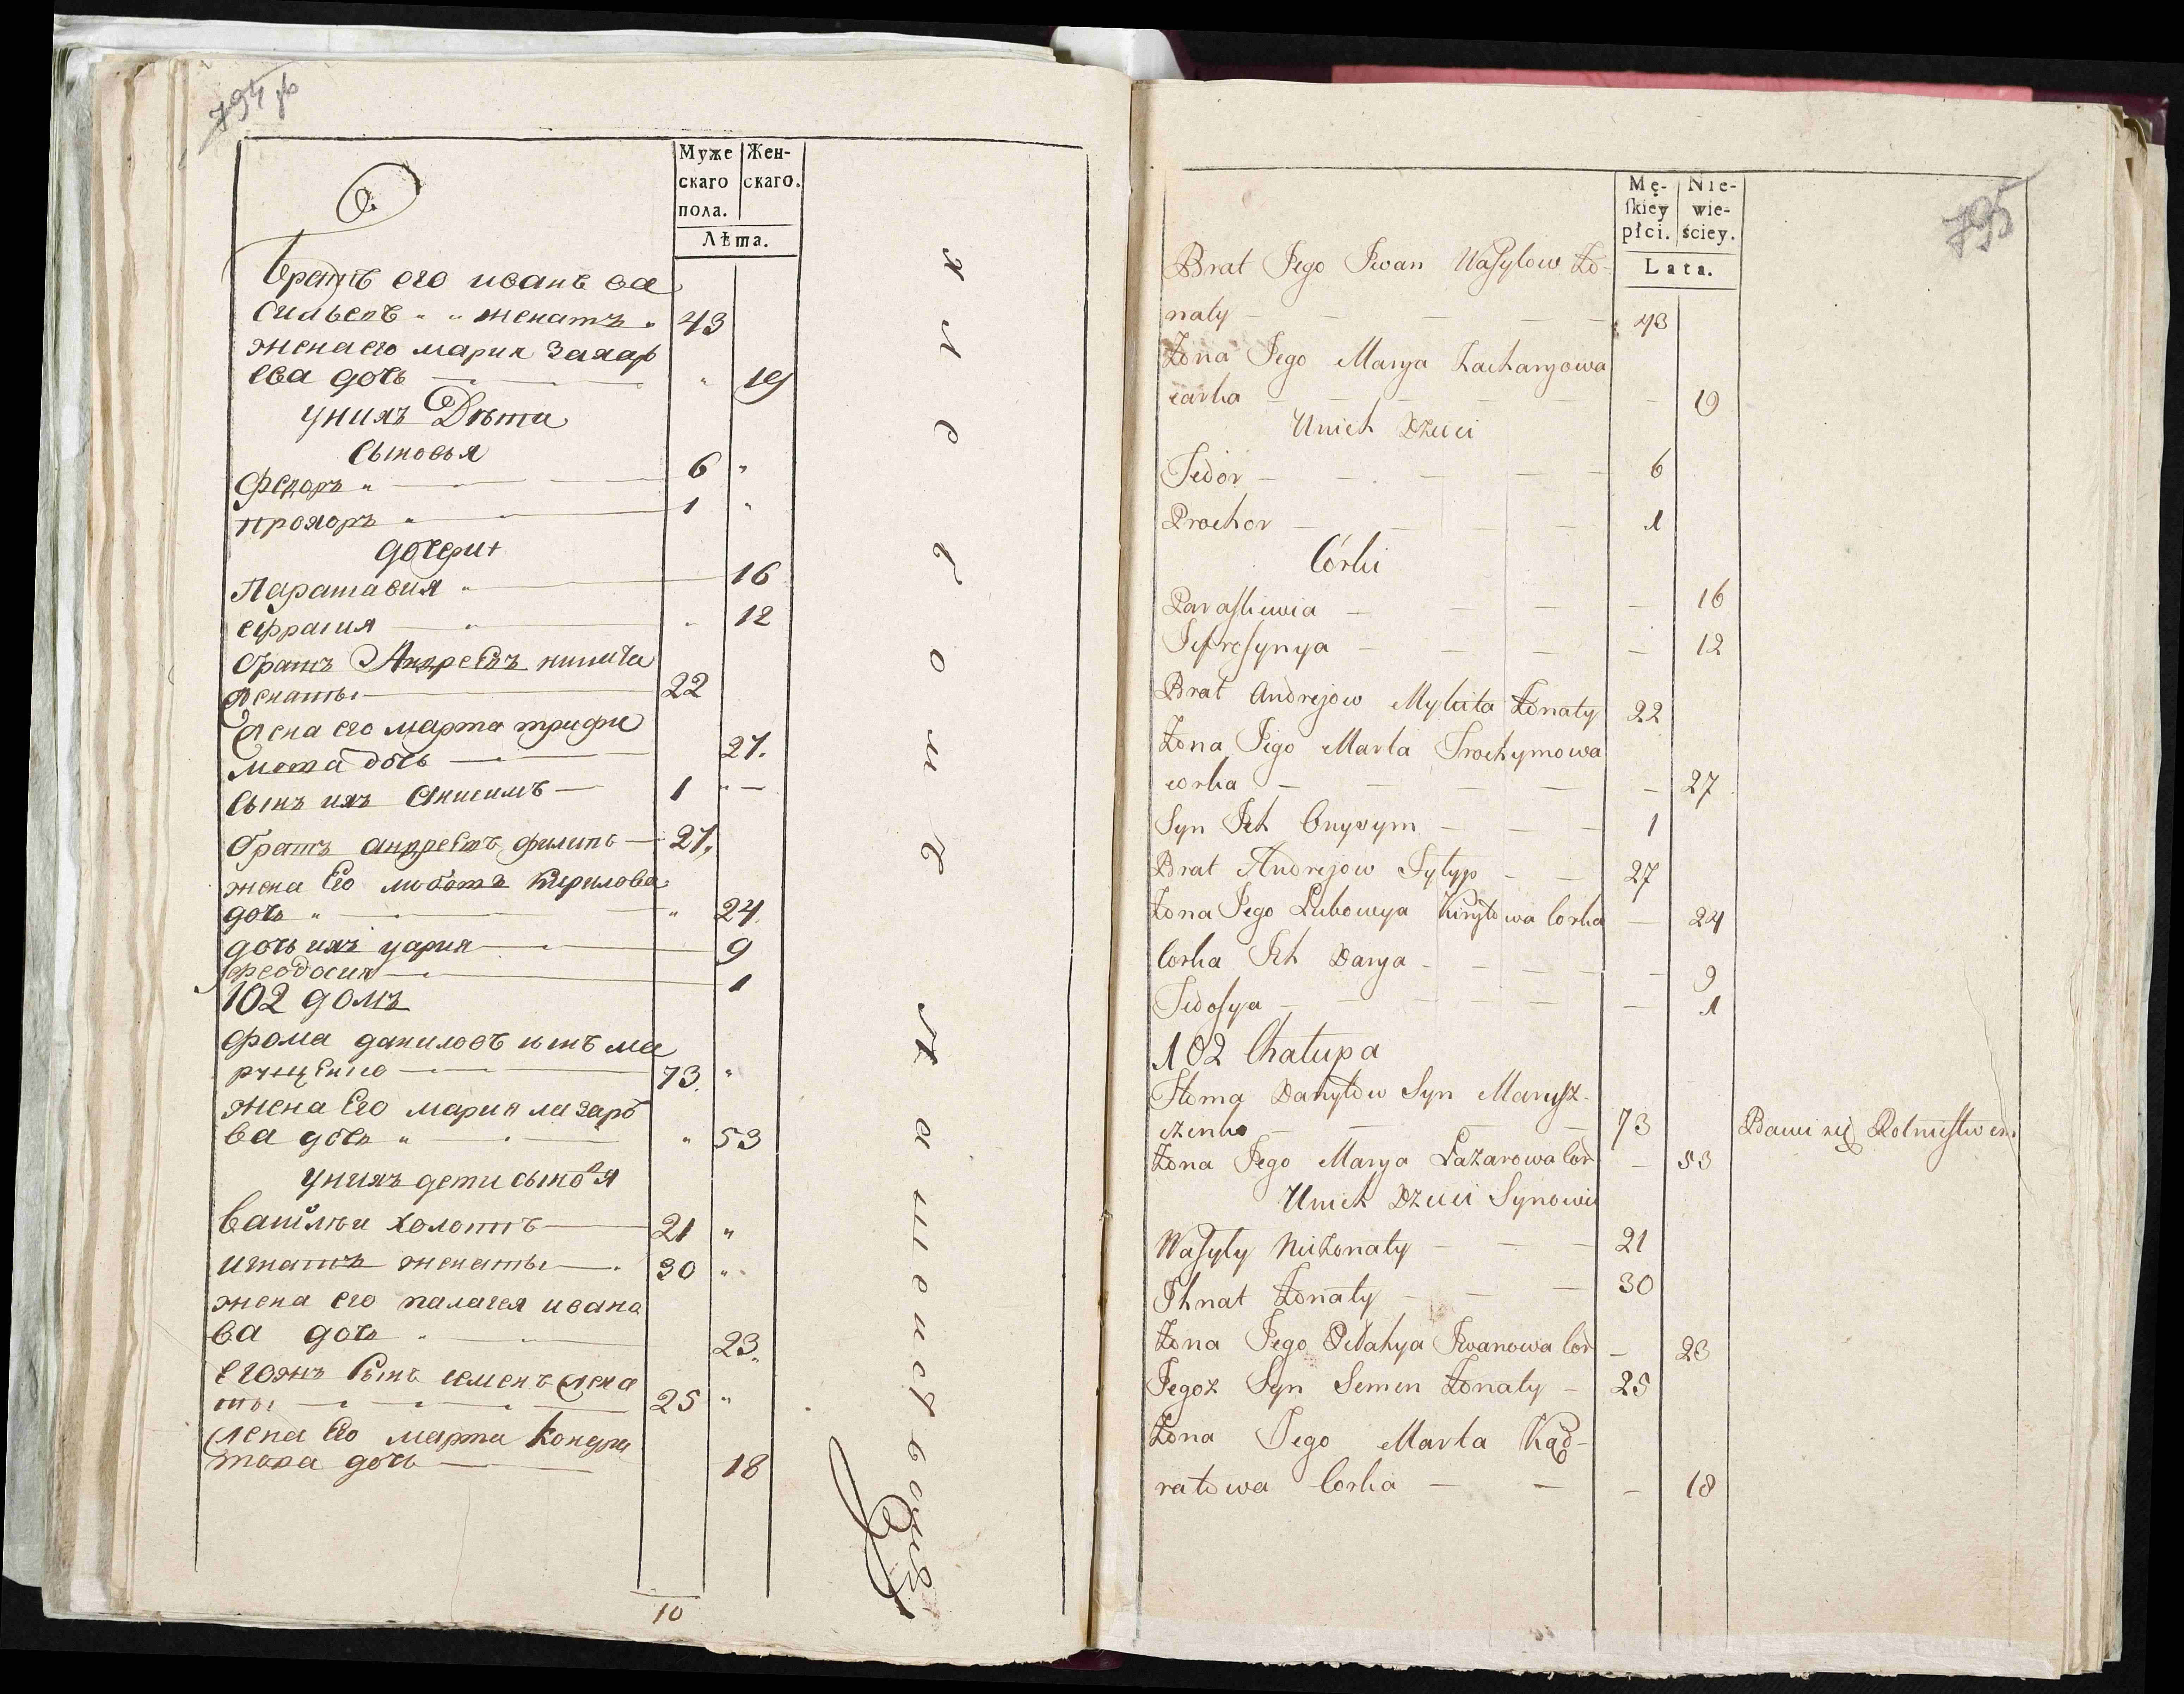 794 об
Муже
скаго
пола.
Жен-
скаго.
Лѣта.
братъ его иванъ ва
сильевъ " " женатъ " 43
жена его мария захар
ева дочь — " 19
у них Дѣти
сыновья
Федоръ " — 6 "
прохоръ " — 1 "
дочери
Параскавия " — 16
ефрасия — " 12
братъ Андреевъ никита
женаты — 22
жена его марта трифи
мова дочь — 27.
сынъ ихъ Анисимъ — 1 " —
братъ андреевъ филипъ — 27,
жена его любовъ кирилова
дочь " — " 24.
дочь ихъ дария — 9
феодосия — 1
102 домъ
фома даниловъ сынъ ма
рущенко — 73. "
жена его мария лазаро
ва дочь " — " 53
у нихъ дети сыновя
василии холостъ — 21 "
игнатъ женаты — 30 "
жена его палагея ивано
ва дочь " — 23.
егожъ сынъ семенъ жена
ты — 25 "
жена его марта кондра
това дочь — 18
10
795
Mę-
skiey
płci.
Nie-
wie-
ściey.
Lata.
Brat Jego Iwan Wasylow Żo-
naty — 43
Żona Jego Marya Zacharyowa
carka — 19
Unich Dzieci
Fedor — 6
Prochor — 1
Córki
Paraskiewia — 16
Jefrosynya — 12
Brat Andrejow Mykita Żonaty 22
Żona Jego Marta Trochymowa
corka — 27
Syn Ich Onysym — 1
Brat Andrejow Fylyp — 27
Żona Jego Lubowya Kirylowa Corka — 24
Corka Ich Darya — 9
Fedosya — 1
102 Chałupa
Homa Danyłow Syn Marusz-
czenko — 73 Bawi się Rolnictwem
Żona Jego Marya Łazarowa Cor — 53
Unich Dzieci Synowie
Wasyly Nieżonaty — 21
Ihnat Żonaty — 30
Żona Jego Pelahya Iwanowa Cor — 23
Jegoż Syn Semen Żonaty — 25
Żona Jego Marta Kąd-
ratowa Corka — 18